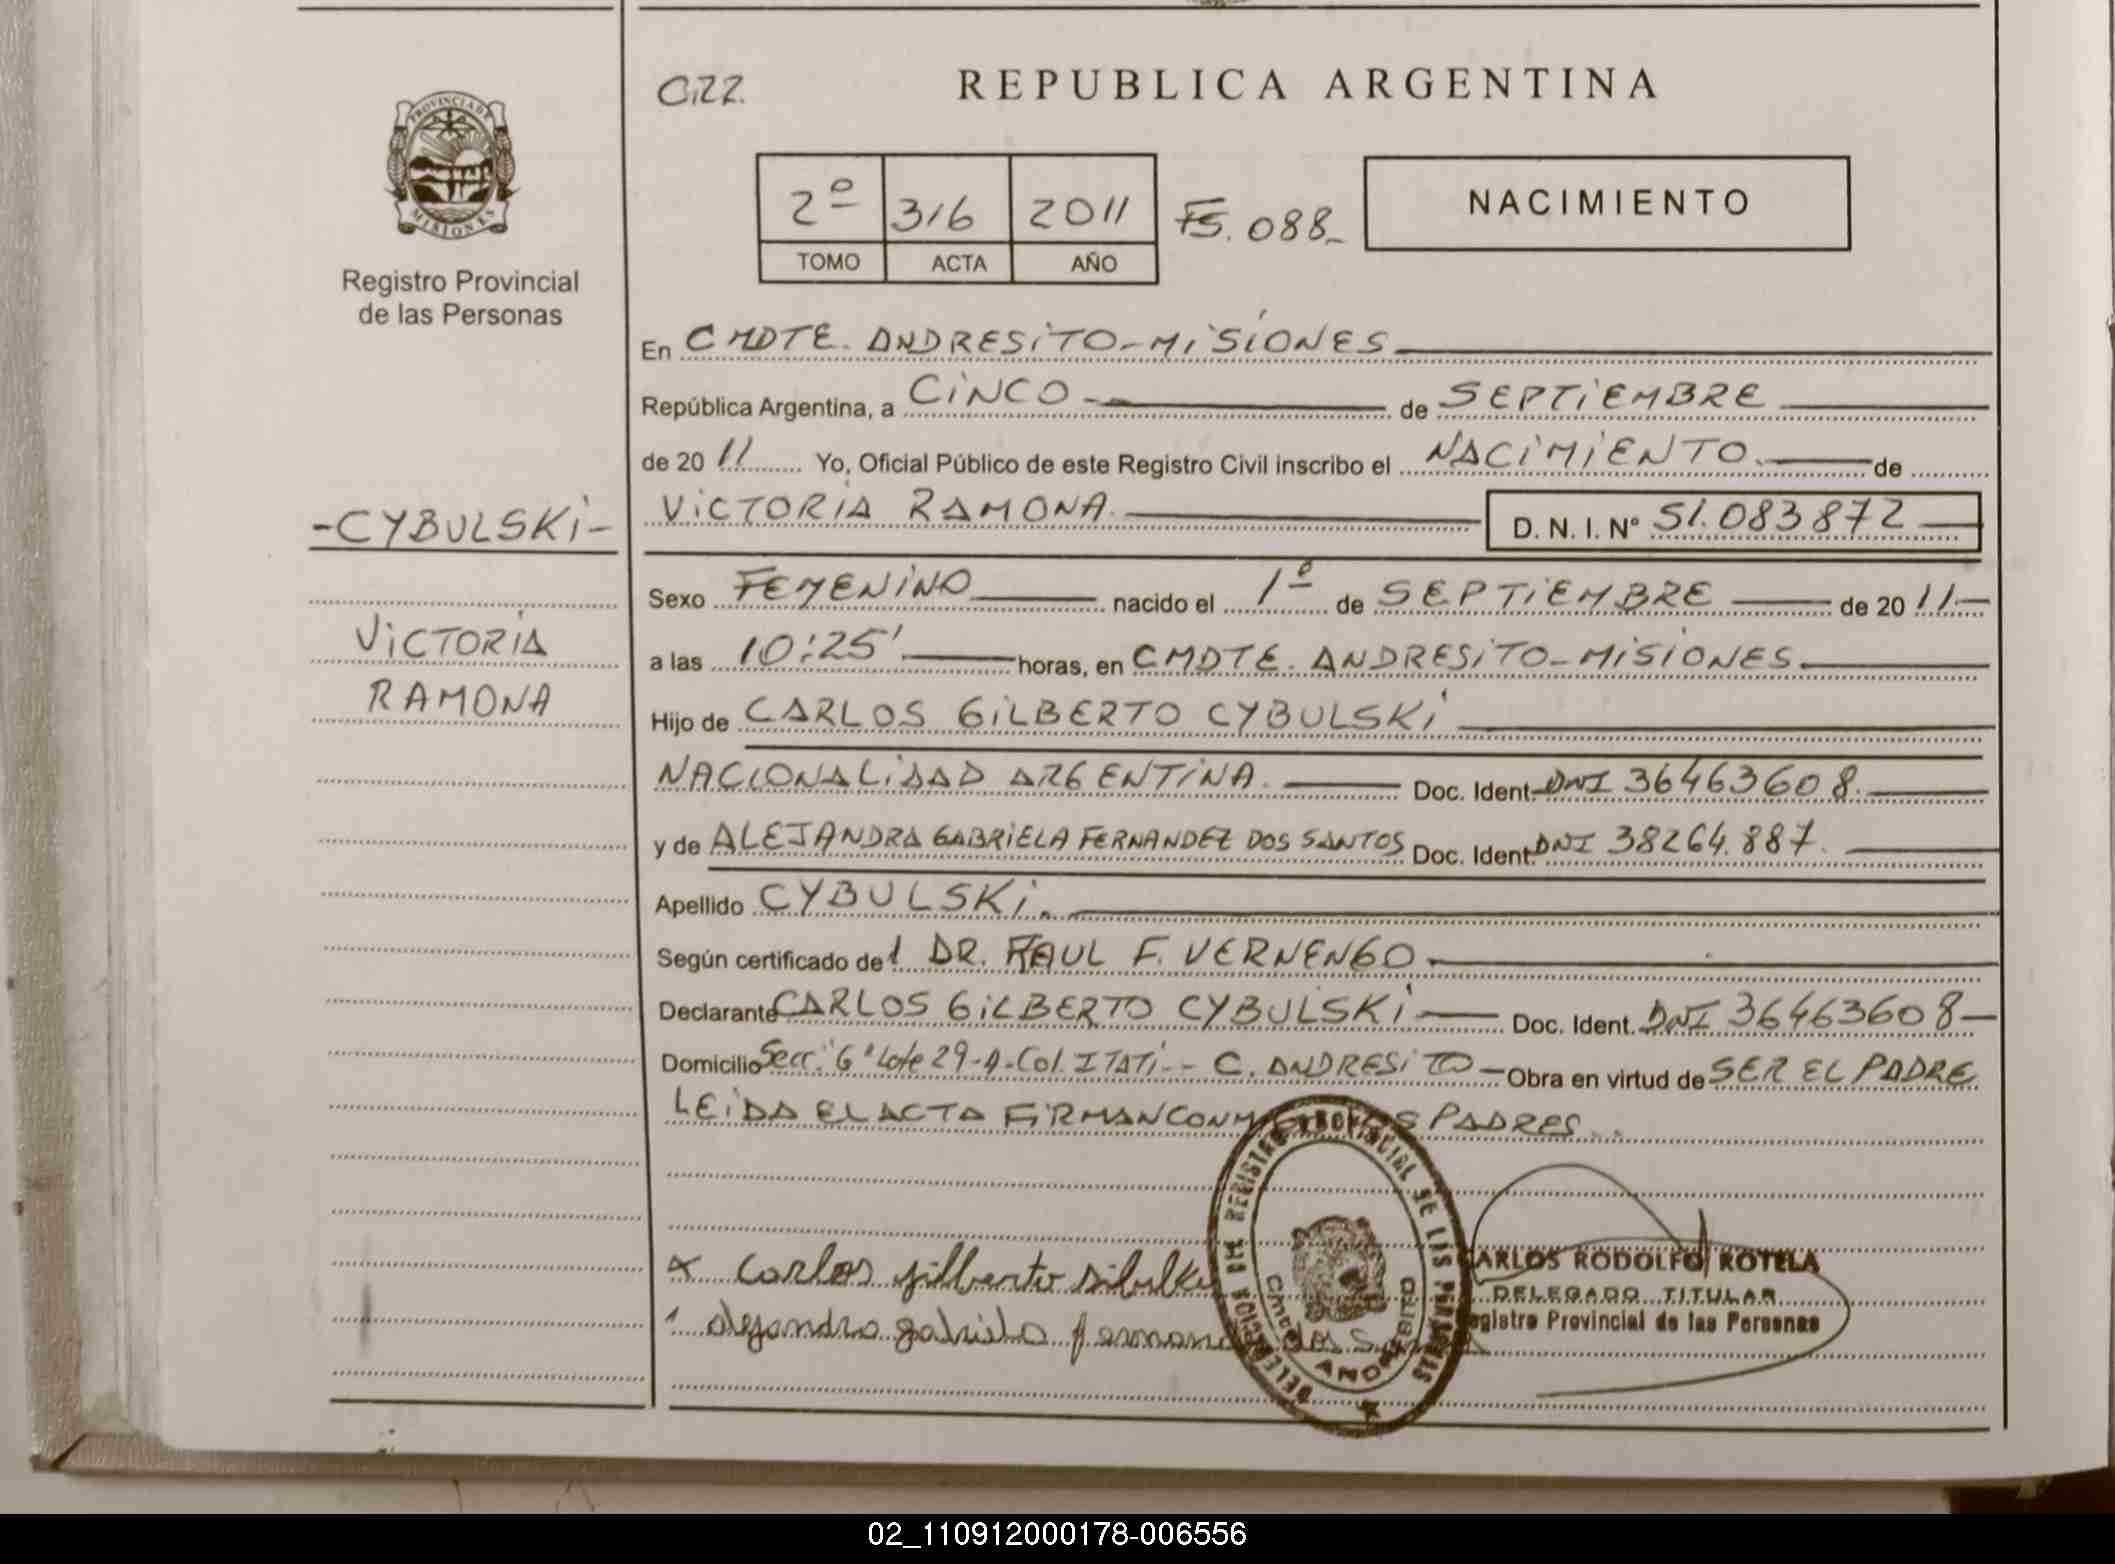 C.R.R.
REPUBLICA ARGENTINA
PROVINCIA DE
MISIONES
Registro Provincial
de las Personas
2º 316 2011 FS. 088_
TOMO ACTA AÑO
NACIMIENTO
En CMDTE. ANDRESiTO-MiSiONES
República Argentina, a CiNCO de SEPTiEMBRE
de 20 11 Yo, Oficial Público de este Registro Civil inscribo el NACiMiENTO de
VICTORiA RAMONA D. N. I. Nº 51.083872
-CYBULSKi-
ViCTORiA
RAMONA
Sexo FEMENiNO nacido el 1º de SEPTiEMBRE de 20 11
a las 10:25' horas, en CMDTE. ANDRESiTO-MiSiONES.
Hijo de CARLOS GiLBERTO CYBULSKi
NACIONALiDAD ARGENTiNA. Doc. Ident. DNI 36463608.
y de ALEJANDRA GABRiELA FERNANDEZ DOS SANTOS Doc. Ident. DNI 38264.887.
Apellido CYBULSKi.
Según certificado del DR. RAUL F. VERNENGO
Declarante CARLOS GiLBERTO CYBULSKi Doc. Ident. DNI 36463608
Domicilio Secc. "6" Lote 29-A-Col. ITATi-- C. ANDRESiTO Obra en virtud de SER EL PADRE
LEiDA EL ACTA FiRMAN CONM PADRES.
x Carlos gilberto sibulki
alejandra gabriela fernand dos s
DELEGACION REGISTRO PROVINCIAL DE LAS PERSONAS
Cmdte ANDRESITO
CARLOS RODOLFO ROTELA
DELEGADO TITULAR
Registro Provincial de las Personas
02_110912000178-006556